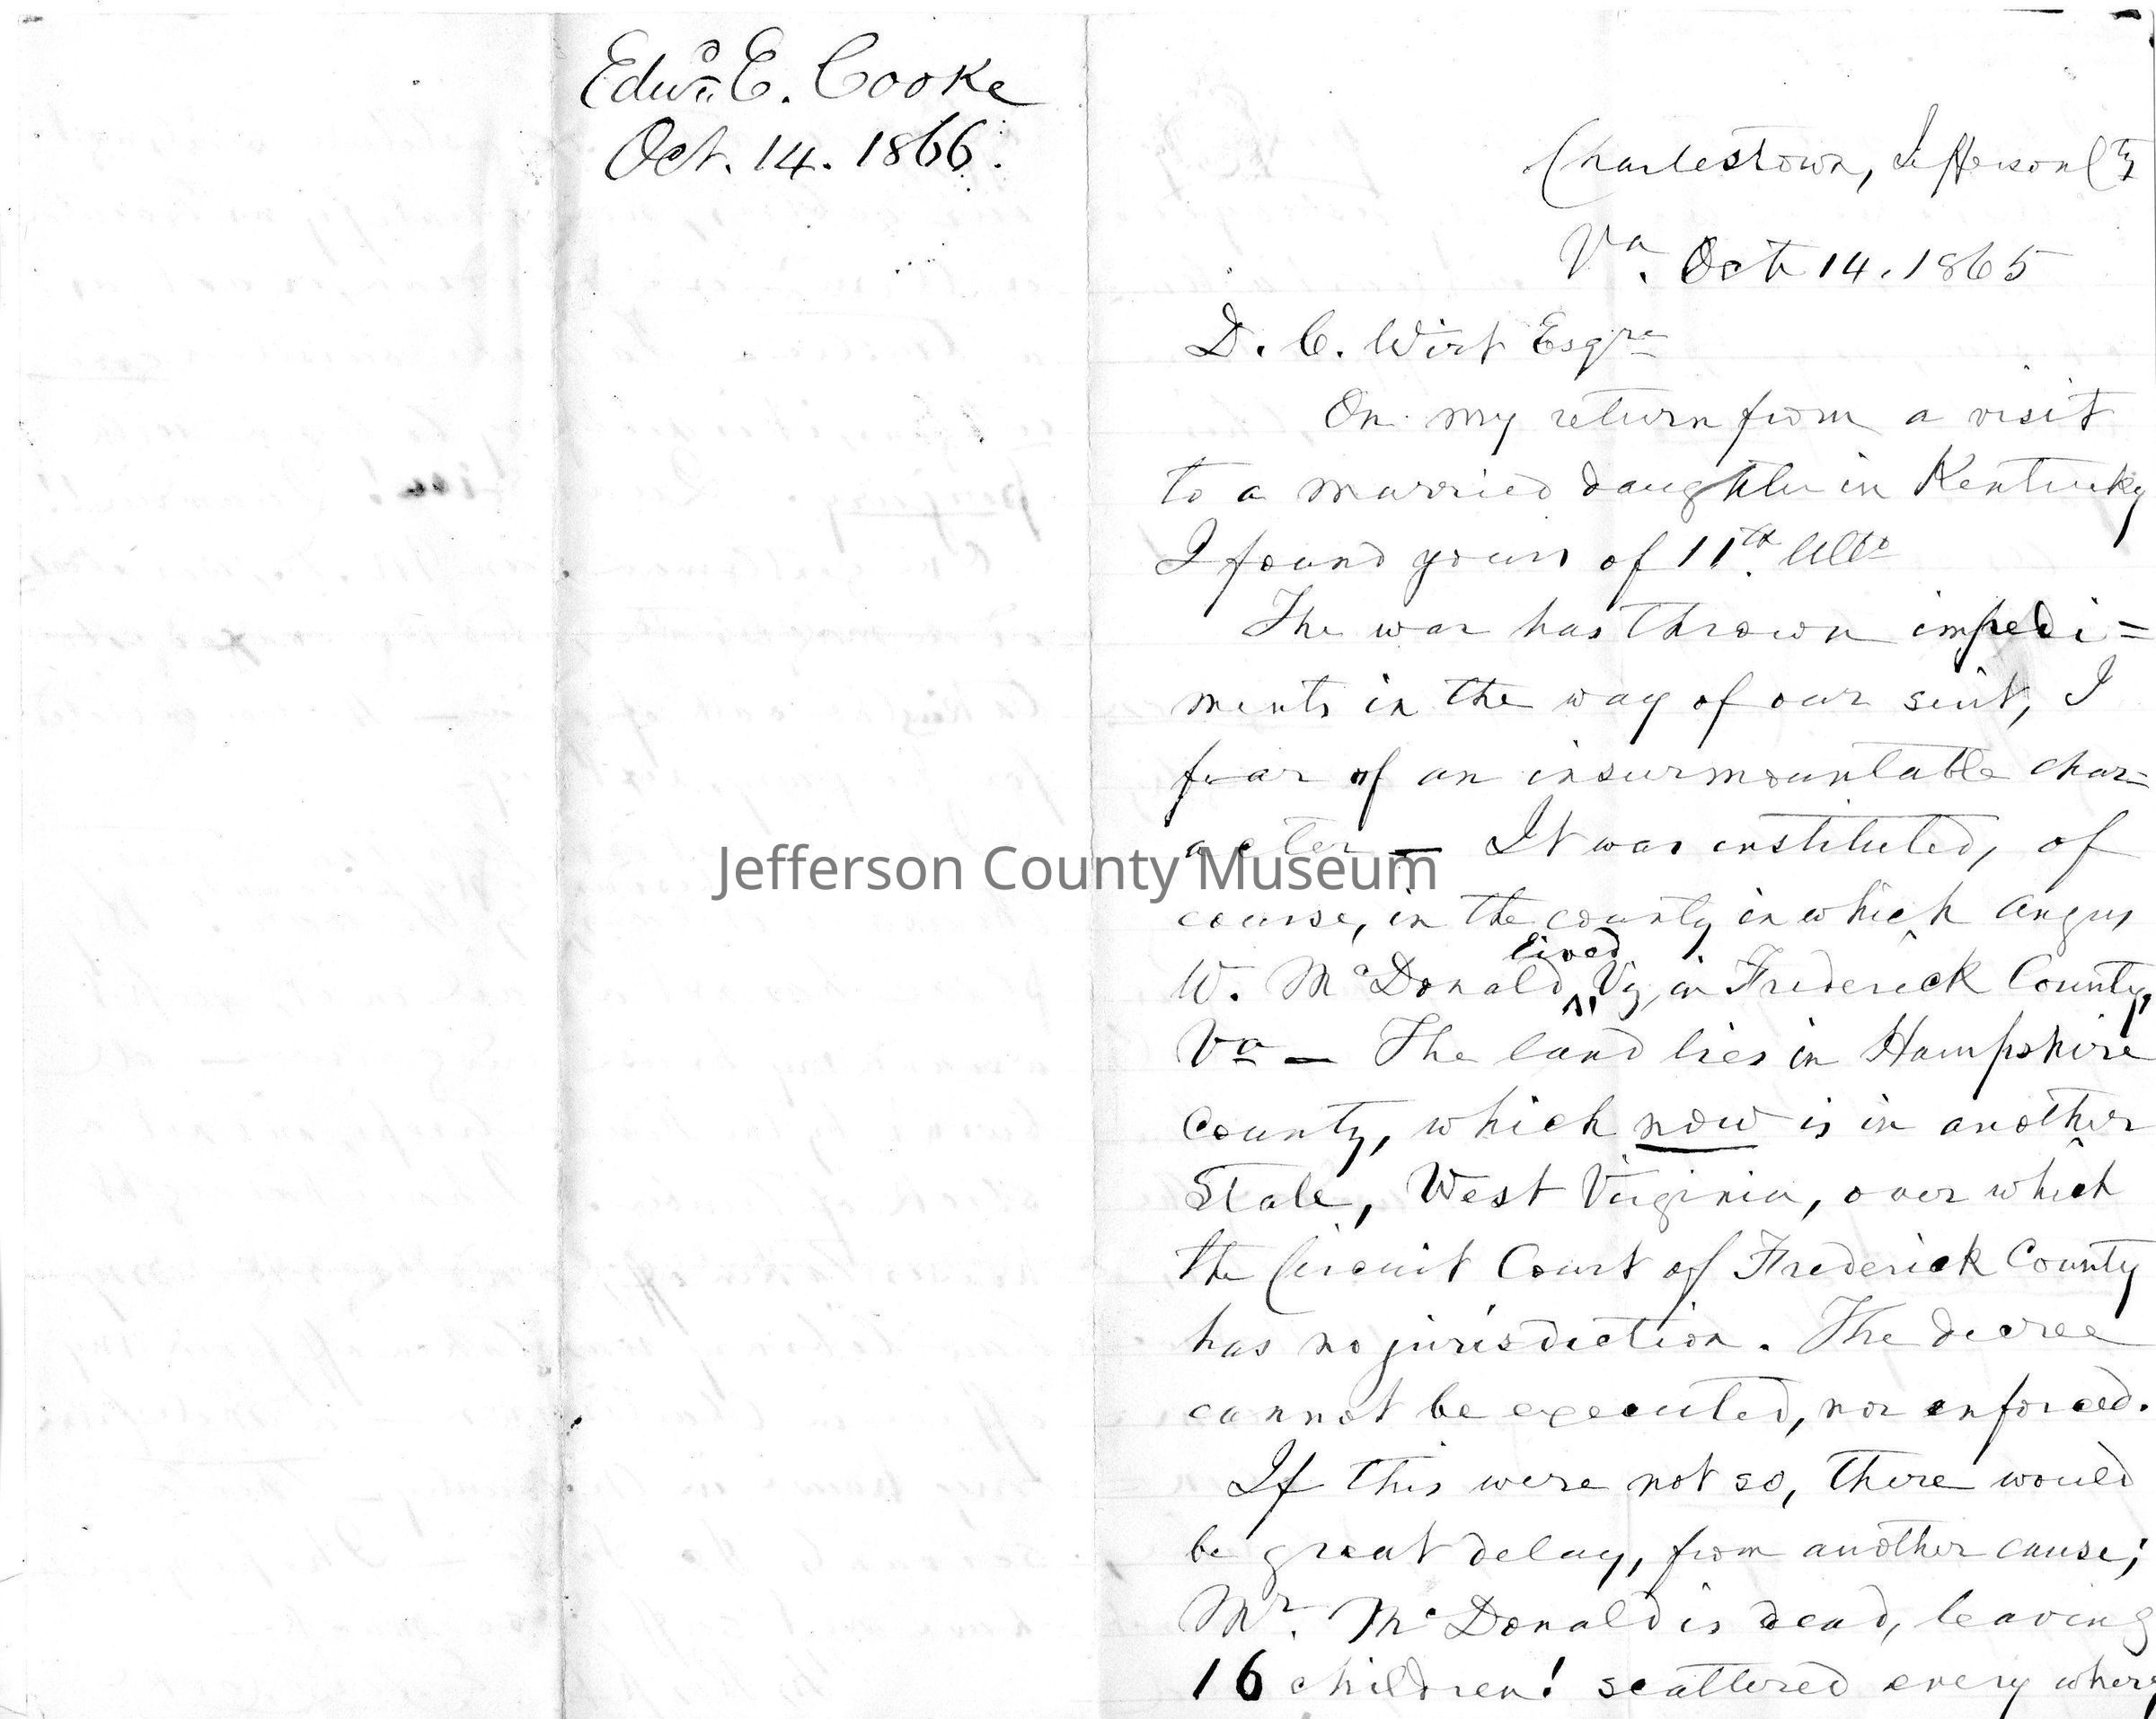 Edwd. E. Cooke
Oct. 14. 1866.
Charlestown, Jefferson Cty
Va. Oct 14. 1865
D. C. Wirt Esqre
On my return from a visit
to a married daughter in Kentucky
I found yours of 11th. Ulto
The war has thrown impedi=
ments in the way of our suit, I
fear of an insurmountable char=
acter — It was instituted, of
course, in the county in which Angus
W. McDonald lived, Viz, in Frederick County,
Va — The land lies in Hampshire
County, which now is in another
State, West Virginia, over which
the Circuit Court of Frederick County
has no jurisdiction. The decree
cannot be executed, nor enforced.
If this were not so, there would
be great delay, from another cause;
Mr. McDonald is dead, leaving
16 children! scattered every where
Jefferson County Museum